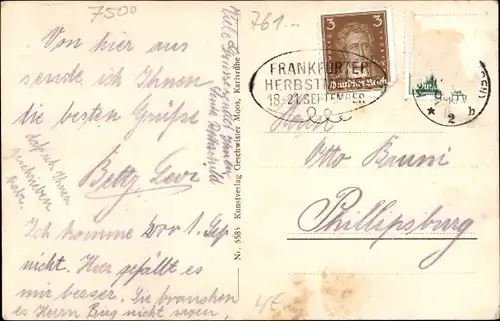 7500
761...
Von hier aus
sende ich Ihnen
die besten Grüsse
Betty Levi
daß ich Ihnen
geschrieben
habe.
Ich komme vor 1. Sep
nicht. Hier gefällt es
mir besser. Sie brauchen
es Herrn nicht sagen,
Viele
Nr. 558 Kunstverlag Geschwister Moos, Karlsruhe
3 3
Deutsches Reich
FRANKFURTER
18-21. SEPTEMBER
* 2 b
Otto Bruni
Phillipsburg